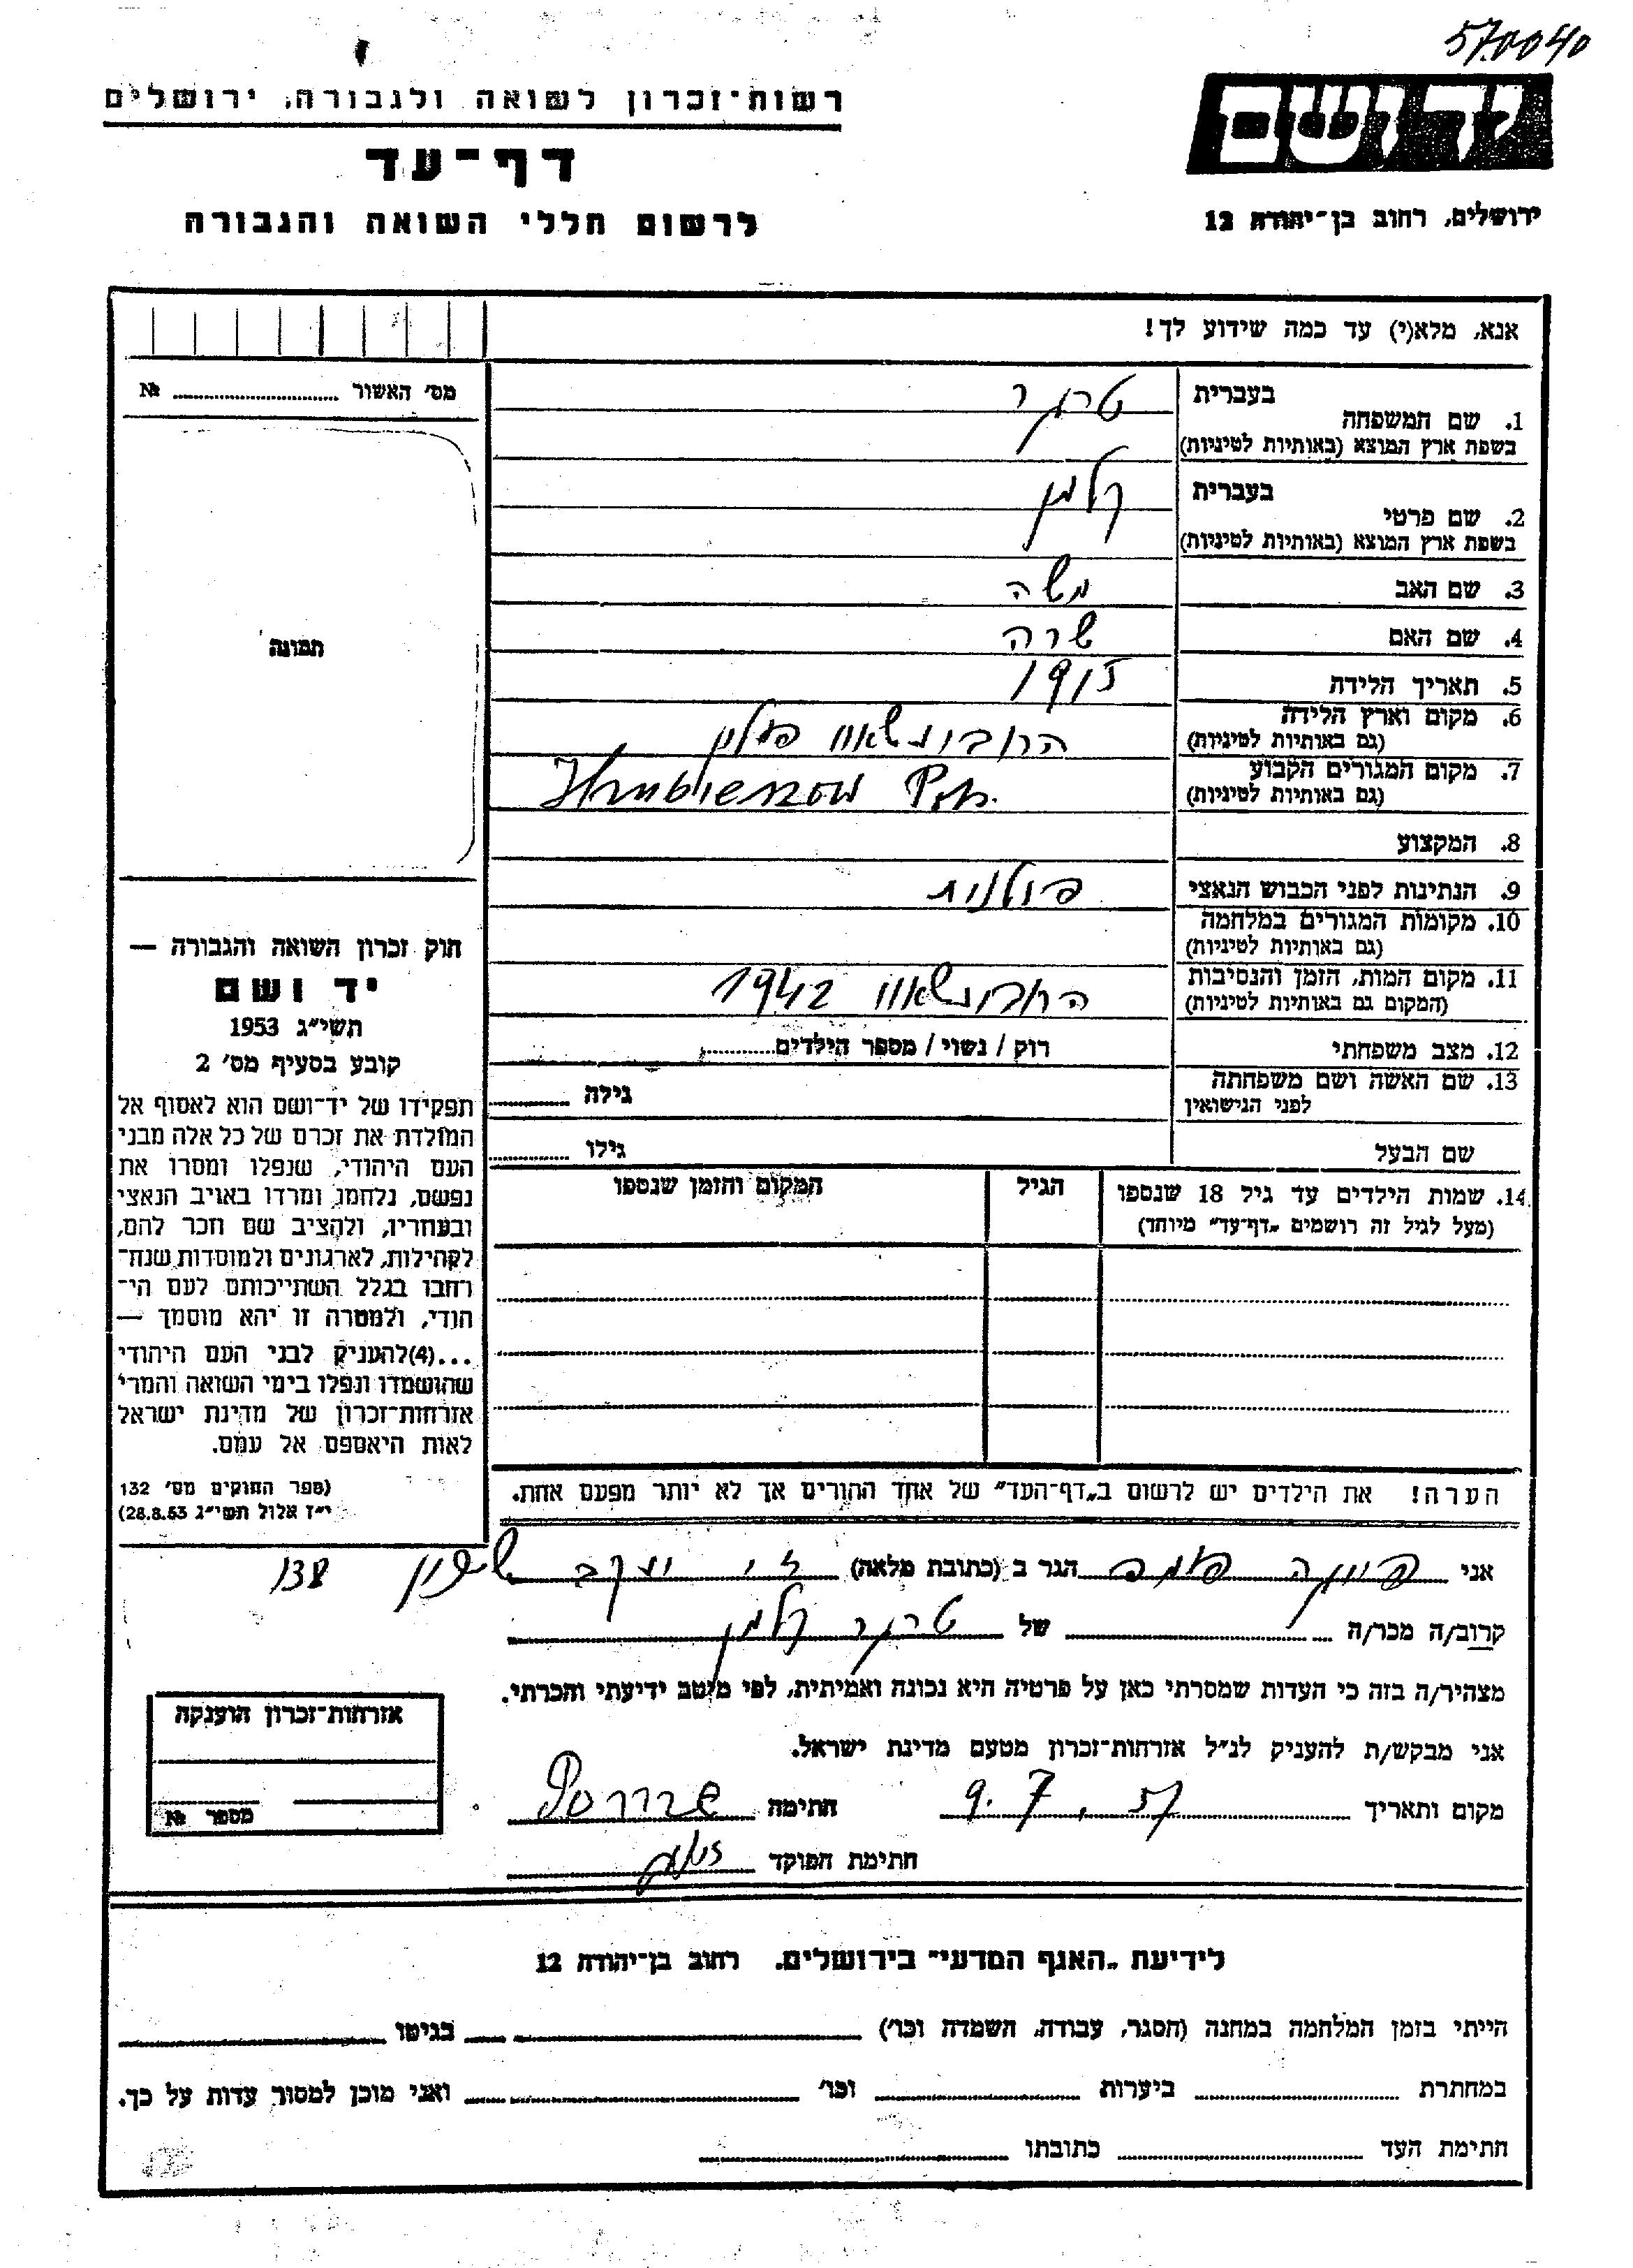 570040
יד ושם
רשות־זכרון לשואה ולגבורה, ירושלים
דף־עד
לרשום חללי השואה והגבורה
ירושלים, רחוב בן־יהודה 12
אנא, מלא(י) עד כמה שידוע לך!
מס׳ האשור № 
בעברית
1. שם המשפחה
בשפת ארץ המוצא (באותיות לטיניות)
בעברית קלמן
2. שם פרטי
בשפת ארץ המוצא (באותיות לטיניות)
3. שם האב משה
4. שם האם שרה
5. תאריך הלידה 1915
6. מקום וארץ הלידה
(גם באותיות לטיניות)
7. מקום המגורים הקבוע
(גם באותיות לטיניות)
8. המקצוע
9. הנתינות לפני הכבוש הנאצי פולנית
10. מקומות המגורים במלחמה
(גם באותיות לטיניות)
11. מקום המות, הזמן והנסיבות 1942
(המקום גם באותיות לטיניות)
12. מצב משפחתי רוק / נשוי / מספר הילדים
13. שם האשה ושם משפחתה גילה
לפני הנישואין
שם הבעל גילו
14. שמות הילדים עד גיל 18 שנספו הגיל המקום והזמן שנספו
(מעל לגיל זה רושמים „דף־עד״ מיוחד)
הערה! את הילדים יש לרשום ב„דף־העד״ של אחד ההורים אך לא יותר מפעם אחת.
תמונה
חוק זכרון השואה והגבורה —
יד ושם
תשי״ג 1953
קובע בסעיף מס׳ 2
תפקידו של יד־ושם הוא לאסוף אל
המולדת את זכרם של כל אלה מבני
העם היהודי, שנפלו ומסרו את
נפשם, נלחמו ומרדו באויב הנאצי
ובעוזריו, ולהציב שם וזכר להם,
לקהילות, לארגונים ולמוסדות שנח־
רבו בגלל השתייכותם לעם הי־
הודי, ולמטרה זו יהא מוסמך —
...(4)להעניק לבני העם היהודי
שהושמדו ונפלו בימי השואה והמרי
אזרחות־זכרון של מדינת ישראל
לאות היאספם אל עמם.
(ספר החוקים מס׳ 132
י״ז אלול תשי״ג 28.8.53)
אני הגר ב (כתובת מלאה) 138
קרוב/ה מכר/ה של קלמן
מצהיר/ה בזה כי העדות שמסרתי כאן על פרטיה היא נכונה ואמיתית, לפי מיטב ידיעתי והכרתי.
אני מבקש/ת להעניק לנ״ל אזרחות־זכרון מטעם מדינת ישראל.
מקום ותאריך 9. 7. 57 חתימה
חתימת הפוקד
אזרחות־זכרון הוענקה
מספר №
לידיעת „האגף המדעי״ בירושלים, רחוב בן־יהודה 12
הייתי בזמן המלחמה במחנה (הסגר, עבודה, השמדה וכו׳) בגיטו
במחתרת ביערות וכו׳ ואני מוכן למסור עדות על כך.
חתימת העד כתובתו